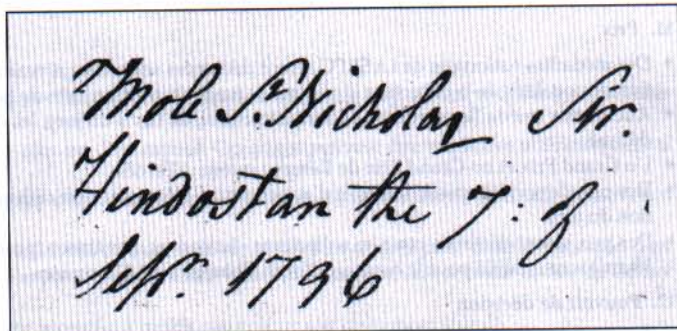 Mole St. Nicholas Sir.
Hindostan the 7: of
Sepr. 1796